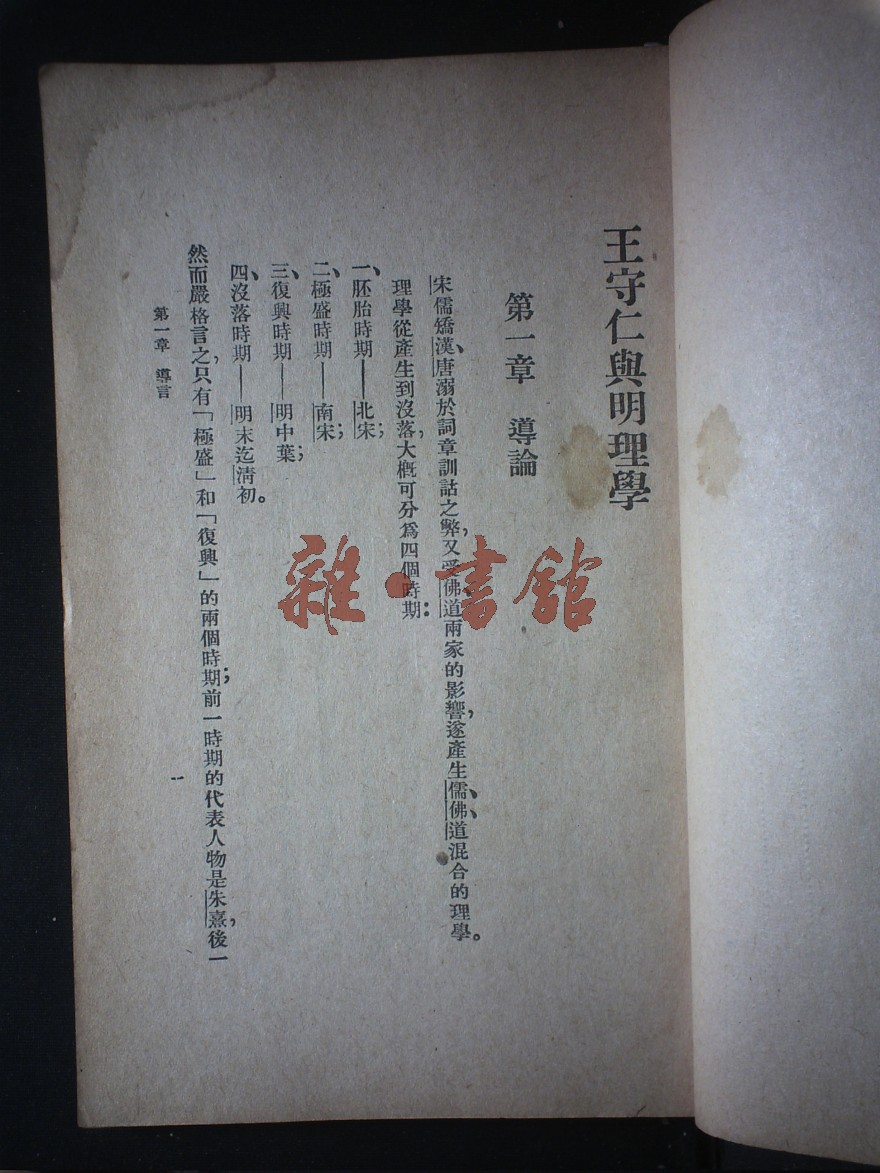 王守仁與明理學
第一章　導論
宋儒矯漢、唐溺於詞章訓詁之弊，又受佛道兩家的影響，遂產生儒、佛、道混合的理學。
理學從產生到沒落，大概可分爲四個時期：
一、胚胎時期——北宋；
二、極盛時期——南宋；
三、復興時期——明中葉；
四、沒落時期——明末迄清初。
然而嚴格言之，只有「極盛」和「復興」的兩個時期；前一時期的代表人物是朱熹，後一
第一章　導言
一
雜·書館